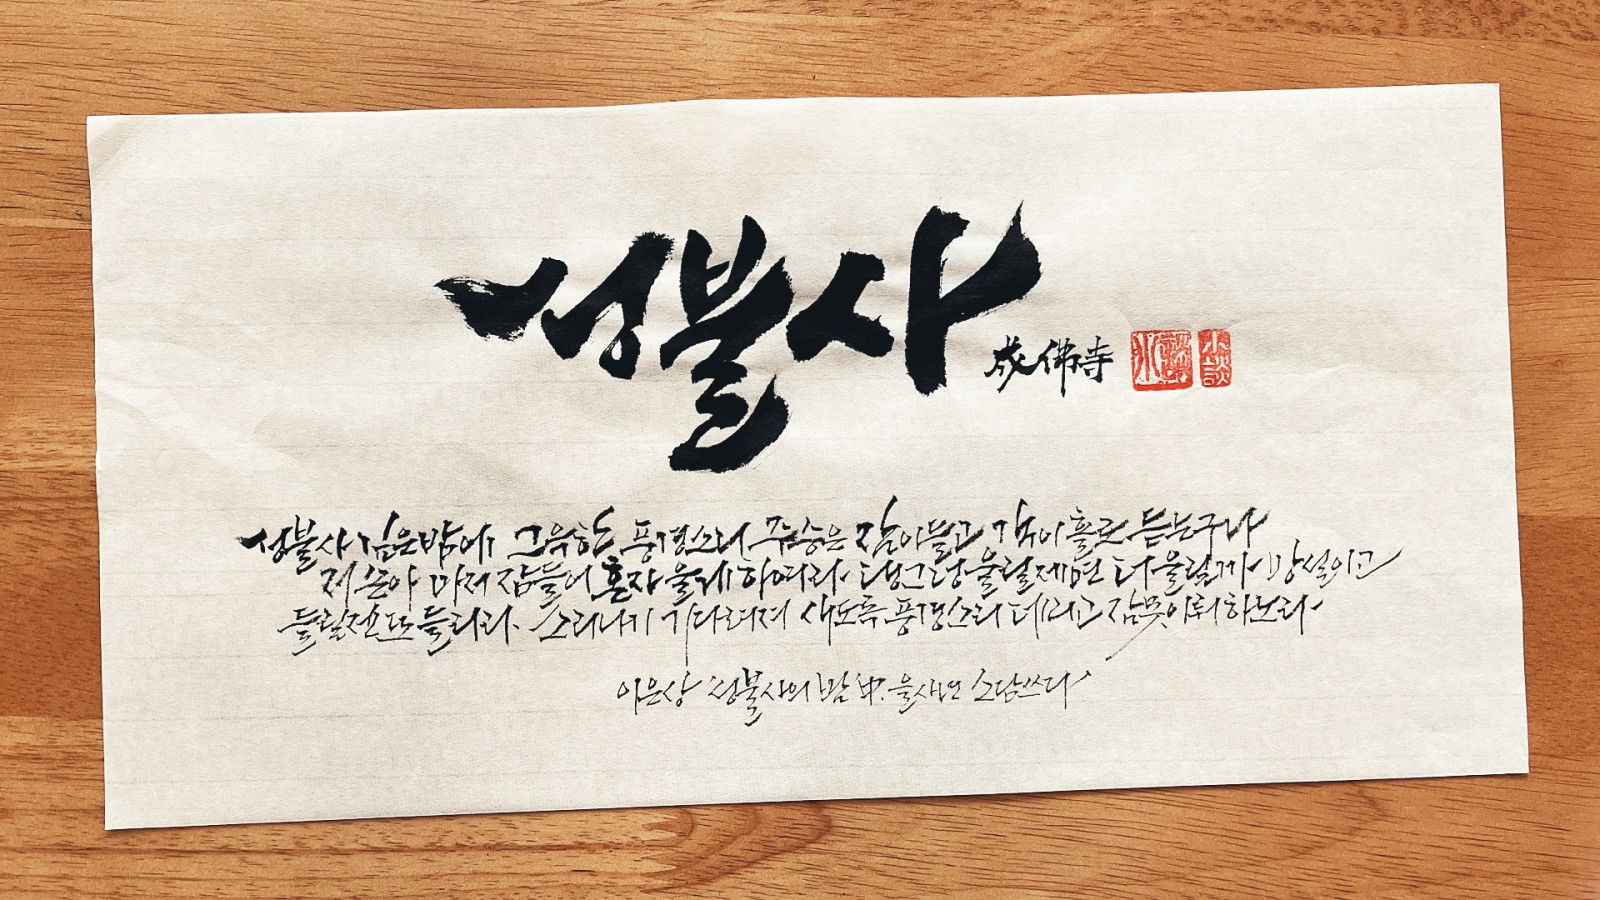 성불사
成佛寺
성불사 깊은밤에 그윽한 풍경소리 주승은 잠이들고 객이 홀로 듣는구나
저 손아 마저 잠들어 혼자 울게 하여라. 댕그렁 울릴제면 더 울릴까 망설이고
들릴젠 또 들리라. 소리나기 기다려져 새도록 풍경소리 데리고 잠못이뤄 하노라.
이은상 성불사의 밤 中. 을새인 소담쓰다